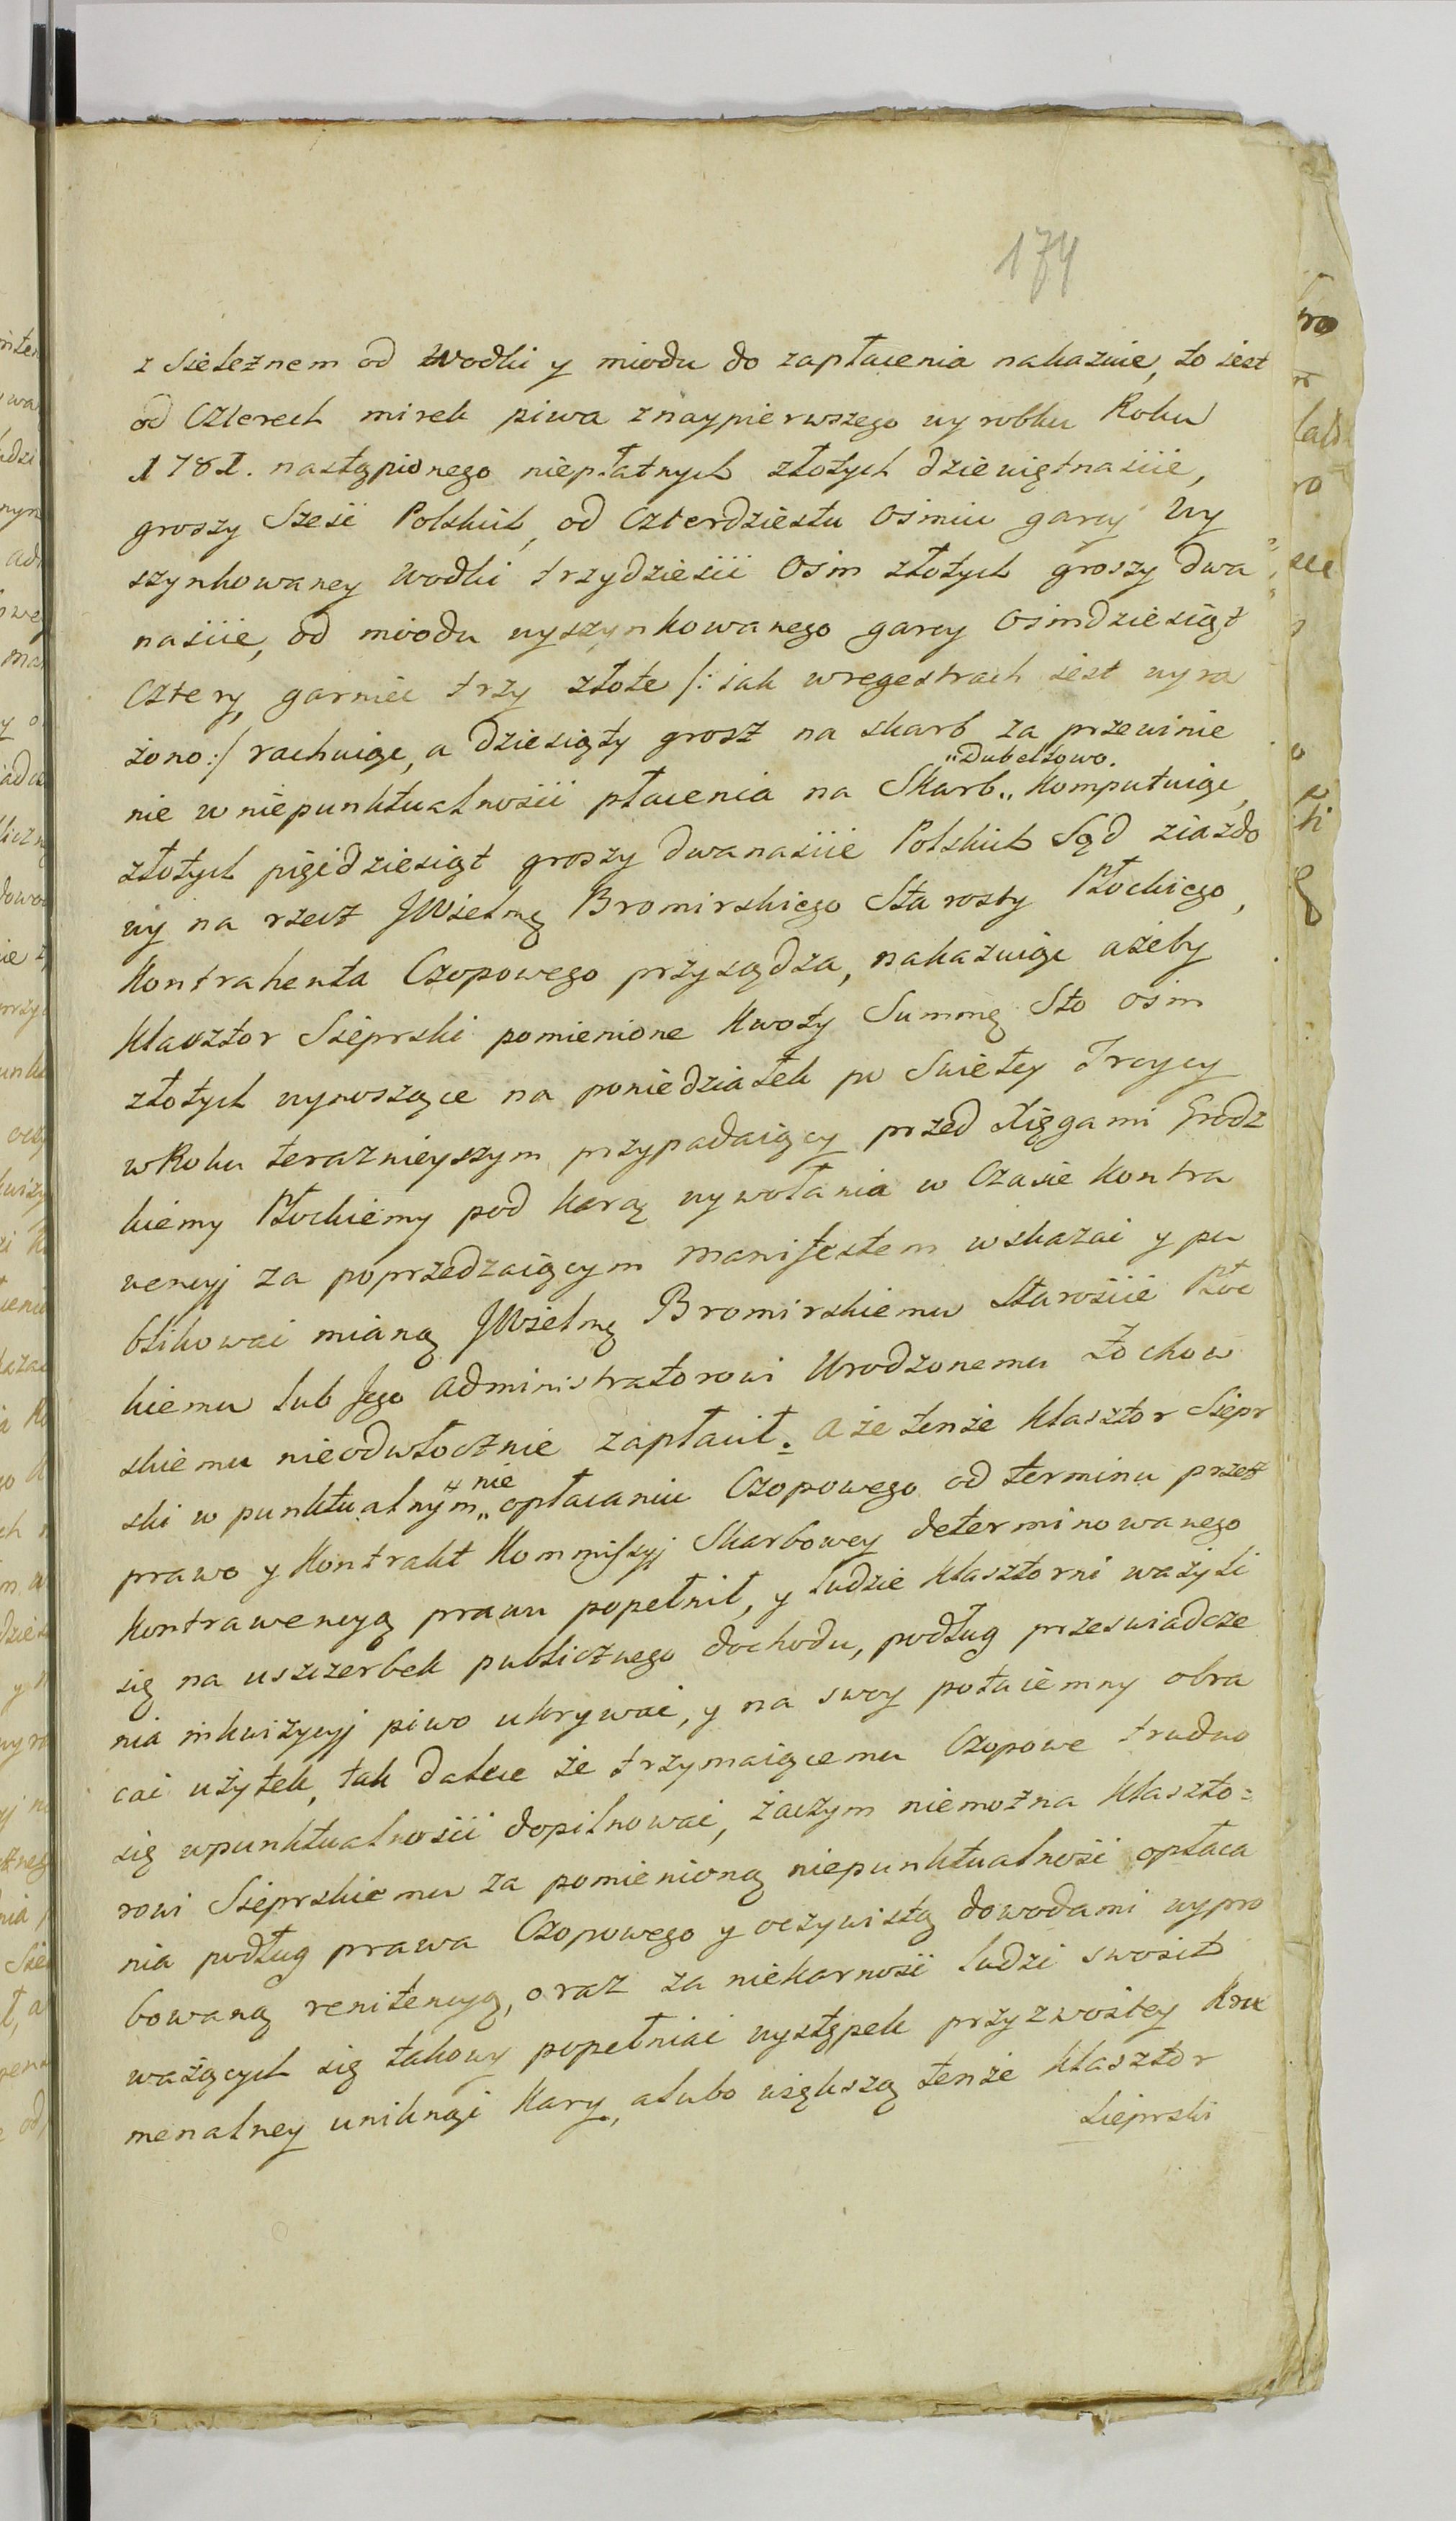 174
z Sieleznem od Wodki y miodu do zapłacenia nakazuie, to iest
od Czterech mirek piwa znaypierwszego wyrobku Roku
1781. nastąpionego niepłatnych złotych dziewiętnaście,
groszy Sześć Polskich, od Czterdziestu Osmiu garcy Wy
szynkowaney Wodki trzydzieści Osm złotych groszy dwa
naście, od miodu wyszynkowanego garcy Osmdziesiąt
Cztery, garniec trzy złote /: iak wregestrach iest wyra
żono :/ rachuiąc, a dziesiąty grosz na skarb za przewinie
nie w niepunktualności płacenia na Skarb „Dubeltowo. Komputuiąc,
złotych pięćdziesiąt groszy dwanaście Polskich Sąd ziazdo
wy na rzecz JWielmę Bromirskiego Starosty Płockiego,
Kontrahenta Czopowego przysądza, nakazuiąc ażeby
Klasztor Sieprski pomienione Kwoty Summę Sto osm
złotych wynoszące na poniedziałek po Swiętey Troycy
w Roku teraznieyszym przypadaiący przed Xięgami Grodz
kiemy Płockiemy pod karą wywołania w Czasie Kontra
wencyj za poprzedzaiącym manifestem wskazać y pu
blikować mianą JWielmę Bromirskiemu Staroście Płoc
kiemu lub Jego Administratorowi Urodzonemu Żochow
skiemu nieodwłocznie zapłacił. A że tenże Klasztor Siepr
ski w punktualnym „nie opłacaniu Czopowego od terminu przez
prawo y Kontrakt Kommissyj Skarbowey determinowanego
Kontrawencyą prawu popełnił, y ludzie klasztorni ważyli
się na uszczerbek publicznego dochodu, podług przeswiadcze
nia inkwizycyj piwo ukrywać, y na swoy potaiemny obra
cać użytek, tak dalece że trzymaiącemu Czopowe trudno
się wpunktualności dopilnować, zaczym niemożna Klaszto=
rowi Sieprskiemu za pomienioną niepunktualność opłaca
nia podług prawa Czopowego y oczywistą dowodami wypro
bowaną renitencyą, oraz za niekarność ludzi swoich
ważących się takowy popełniać występek przyzwoitey Kry
menalney uniknąć Kary, alubo większą tenże Klasztor
Sieprski